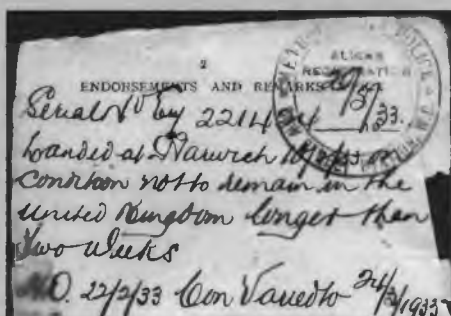 2
ENDORSEMENTS AND REMARKS
METROPOLITAN POLICE
ALIENS
REGISTRATION
Serial No Ey 2214
/33.
Landed at Harwich /33 on
condition not to remain in the
United Kingdom longer than
Two weeks
H.O. 22/2/33 Con Varied to 24/3/1933